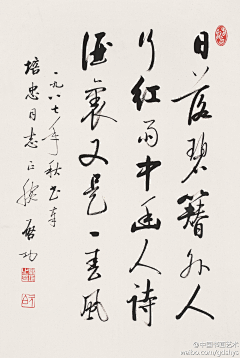 日落碧簪外人
行红雨中幽人诗
酒里又是一春风
一九八七年秋书奉
培忠同志正腕 启功
@中国书画艺术
weibo.com/gdshys